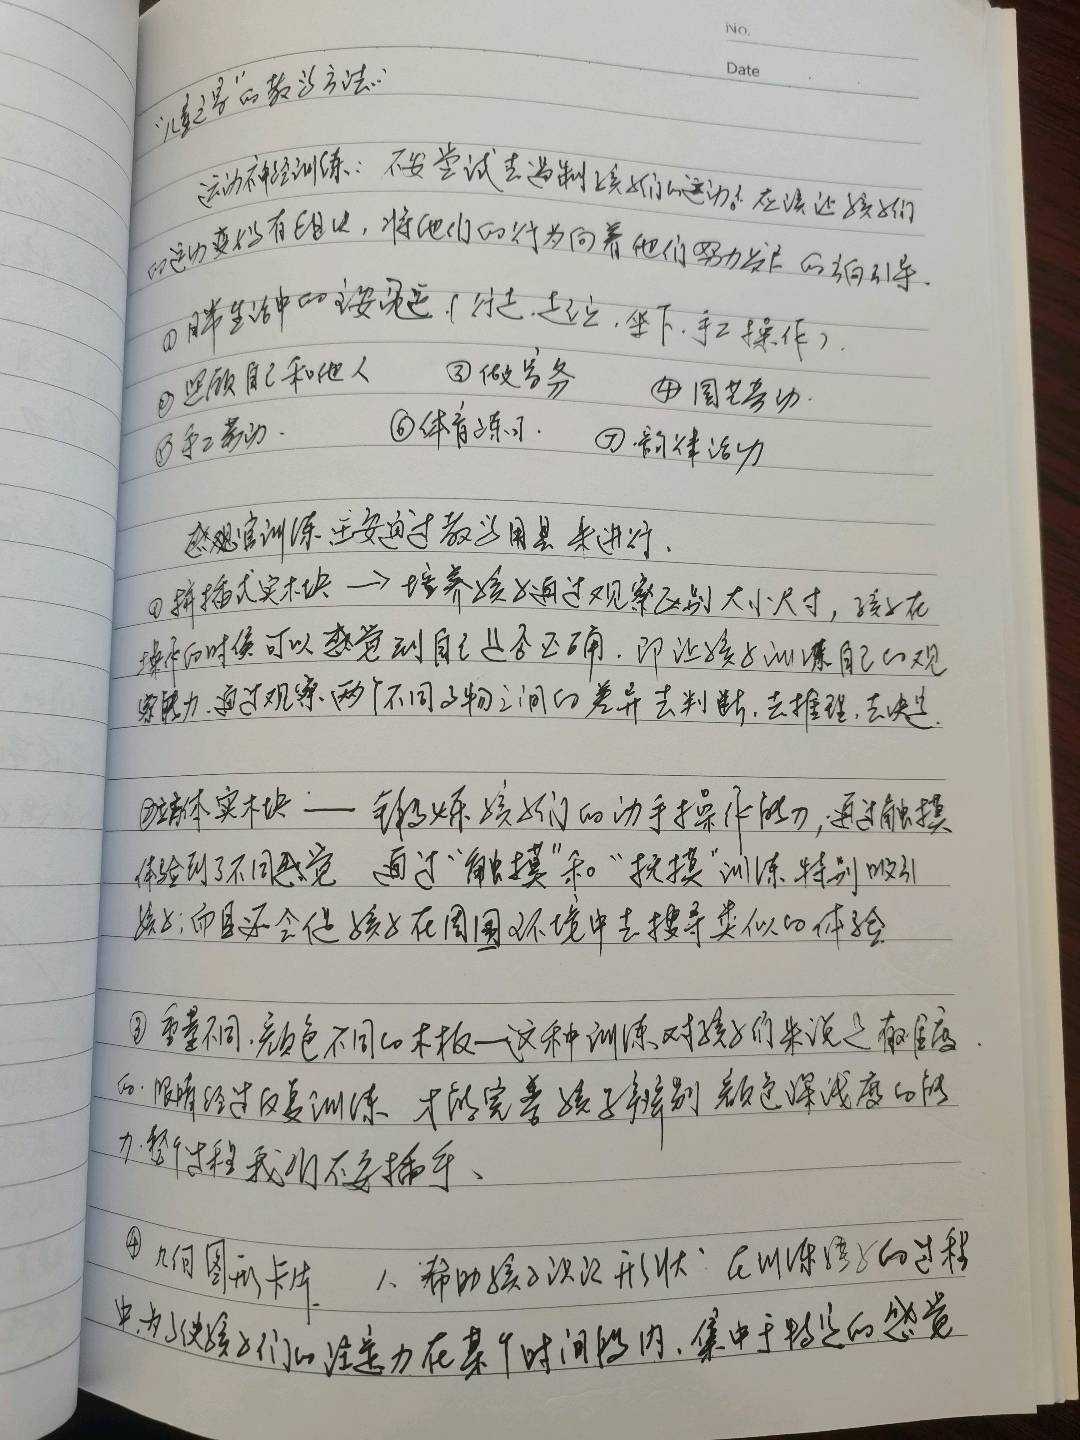 No.
Date
"儿童之家"的教学方法:
运动神经训练: 不要尝试去遏制孩子们的运动。应该让孩子们
的运动变得有组织, 将他们的行为向着他们努力发展的方向引导.
① 日常生活中的主要运动 (行走. 起立. 坐下. 手工操作).
② 照顾自己和他人 ③ 做家务 ④ 园艺劳动.
⑤ 手工劳动. ⑥ 体育练习. ⑦ 韵律活动
感观官训练 主要通过教学用具来进行.
① 拼插式实木块 → 培养孩子通过观察区别大小尺寸, 孩子在
操作的时候可以感觉到自己是否正确. 即让孩子训练自己的观
察能力. 通过观察两个不同事物之间的差异去判断. 去推理. 去决定.
② 立方体实木块 —— 锻炼孩子们的动手操作能力, 通过触摸
体验到了不同感觉 通过"触摸"和"抚摸"训练. 特别吸引
孩子; 而且还会促孩子在周围环境中去搜寻类似的体验
③ 重量不同. 颜色不同的木板—这种训练对孩子们来说是有难度
的. 眼睛经过反复训练 才能完善孩子辨别颜色深浅度的能
力. 整个过程我们不要插手、
④ 几何图形卡片 1、帮助孩子认识形状: 在训练孩子的过程
中, 为了使孩子们的注意力在某个时间段内. 集中于特定的感觉